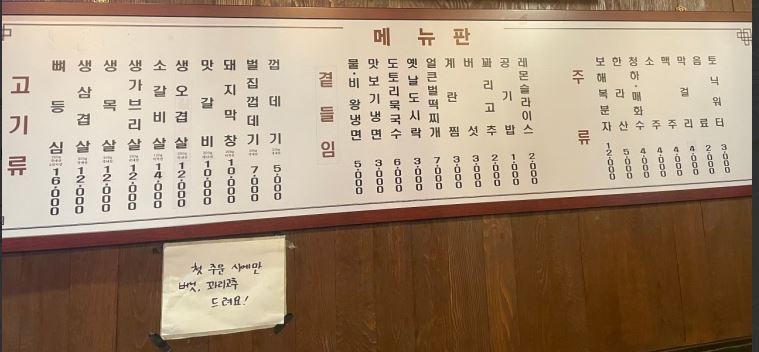 메뉴판
고기류
뼈등심 16,000
생삼겹살 12,000
생목살 12,000
생가브리살 12,000
소갈비살 14,000
생오겹살 12,000
맛갈비 10,000
돼지막창 10,000
벌집껍데기 7,000
껍데기 5,000
곁들임
물·비왕냉면 5,000
맛보기냉면 3,000
도토리묵국수 6,000
옛날도시락 3,000
얼큰벌떡찌개 7,000
계란찜 3,000
버섯 3,000
꽈리고추 2,000
공기밥 1,000
레몬슬라이스 2,000
주류
보해복분자 12,000
한라산 5,000
청하·매화수 5,000
소주 4,000
맥주 4,000
막걸리 4,000
음료 2,000
토닉워터 3,000
첫 주문 시에만
버섯, 꽈리고추
드려요!